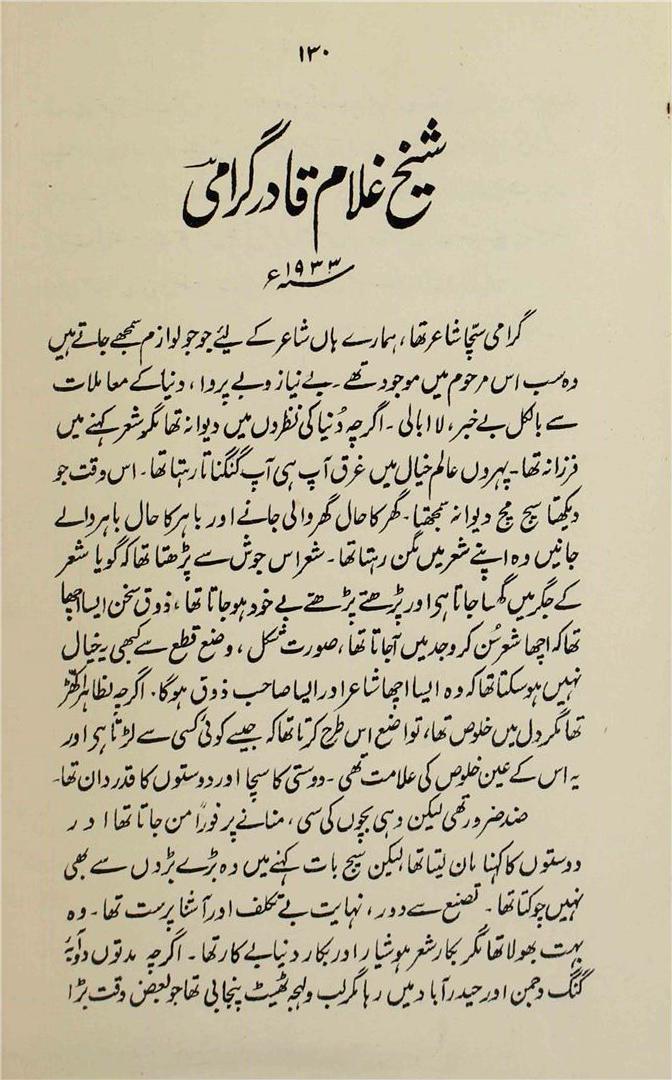 ۱۳۰
شیخ غلام قادر گرامی
سنہ ۱۹۳۳ء
گرامی سچا شاعر تھا، ہمارے ہاں شاعر کے لیئے جو جو لوازم سمجھے جاتے ہیں
وہ سب اس مرحوم میں موجود تھے۔ بے نیاز و بے پروا، دنیا کے معاملات
سے بالکل بے خبر، لا ابالی۔ اگرچہ دُنیا کی نظروں میں دیوانہ تھا مگر شعر کہنے میں
فرزانہ تھا۔ پہروں عالم خیال میں غرق آپ ہی آپ گنگناتا رہتا تھا۔ اس وقت جو
دیکھتا سچ مچ دیوانہ سمجھتا۔ گھر کا حال گھر والی جانے اور باہر کا حال باہر والے
جانیں وہ اپنے شعر میں مگن رہتا تھا۔ شعر اس جوش سے پڑھتا تھا کہ گویا شعر
کے جگر میں گھسا جاتا ہی اور پڑھتے پڑھتے بے خود ہو جاتا تھا، ذوق سخن ایسا اچھا
تھا کہ اچھا شعر سُن کر وجد میں آ جاتا تھا، صورت شکل، وضع قطع سے کبھی یہ خیال
نہیں ہو سکتا تھا کہ وہ ایسا اچھا شاعر اور ایسا صاحب ذوق ہوگا۔ اگرچہ بظاہر اکھڑ
تھا مگر دل میں خلوص تھا، تواضع اس طرح کرتا تھا کہ جیسے کوئی کسی سے لڑتا ہی اور
یہ اس کے عین خلوص کی علامت تھی۔ دوستی کا سچا اور دوستوں کا قدردان تھا۔
ضد ضرور تھی لیکن وہی بچوں کی سی، منانے پر فوراً من جاتا تھا اور
دوستوں کا کہنا مان لیتا تھا لیکن سچ بات کہنے میں وہ بڑے بڑوں سے بھی
نہیں چوکتا تھا۔ تصنع سے دور، نہایت بے تکلف اور آشنا پرست تھا۔ وہ
بہت بھولا تھا مگر بکار شعر ہوشیار اور بکار دنیا بے کار تھا۔ اگرچہ مدتوں دوآبۂ
گنگ و جمن اور حیدرآباد میں رہا مگر لب و لہجہ ٹھیٹ پنجابی تھا جو بعض وقت بڑا